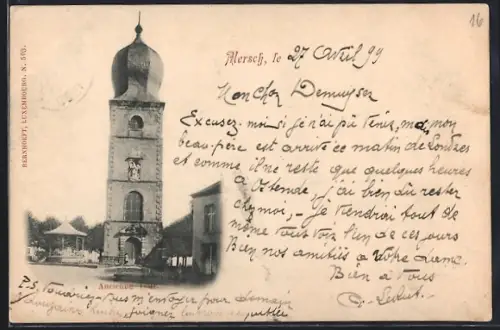 16
BERNHOEFT, LUXEMBOURG. N. 505.
Mersch, le 27 Avril 99
Mon cher Demuyser
Excusez-moi si je n'ai pû venir, mais mon
beau-père est arrivé ce matin de Londres
et comme il ne reste que quelques heures
à Ostende, j'ai bien dû rester
chez moi, - je viendrai tout de
même vous voir l'un de ces jours
Bien nos amitiés à votre dame.
Bien à vous
Ancienne Tour.
P.S. Voudriez-vous m'envoyer pour demain